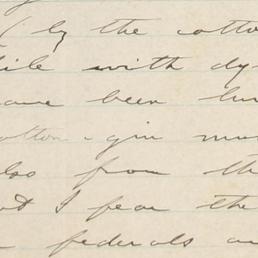 (by the cotto
ile with dy
ave been
otton-gin
lso from th
t I fear the
federals a